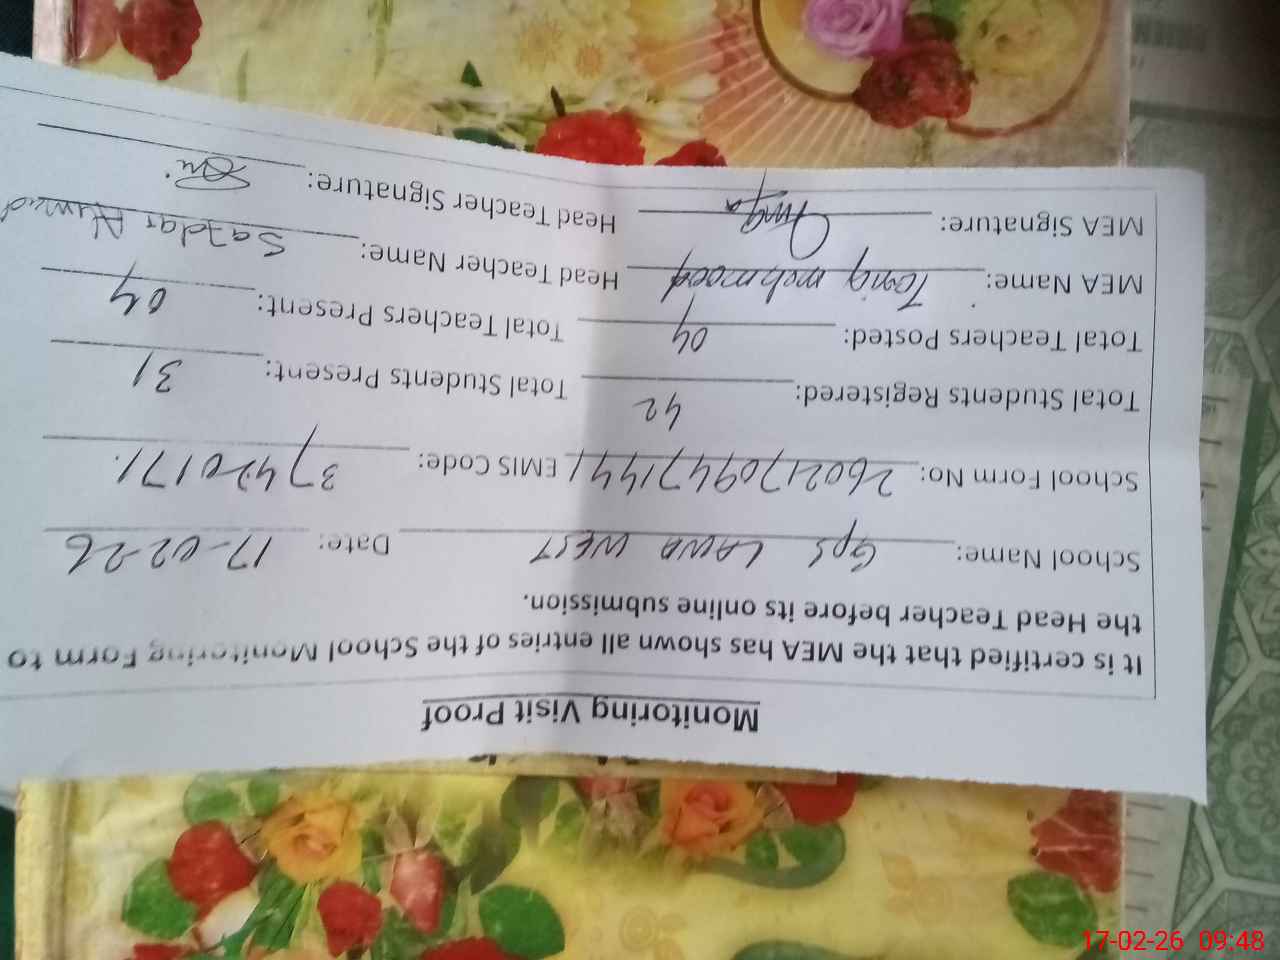 Monitoring Visit Proof
It is certified that the MEA has shown all entries of the School Monitoring Form to
the Head Teacher before its online submission.
School Name: GPS LAWA WEST Date: 17-02-26
School Form No: 26021709471441 EMIS Code: 37420171
Total Students Registered: 42 Total Students Present: 31
Total Teachers Posted: 04 Total Teachers Present: 04
MEA Name: Tariq mehmood Head Teacher Name: Safdar Ahmad
MEA Signature: Head Teacher Signature:
17-02-26 09:48